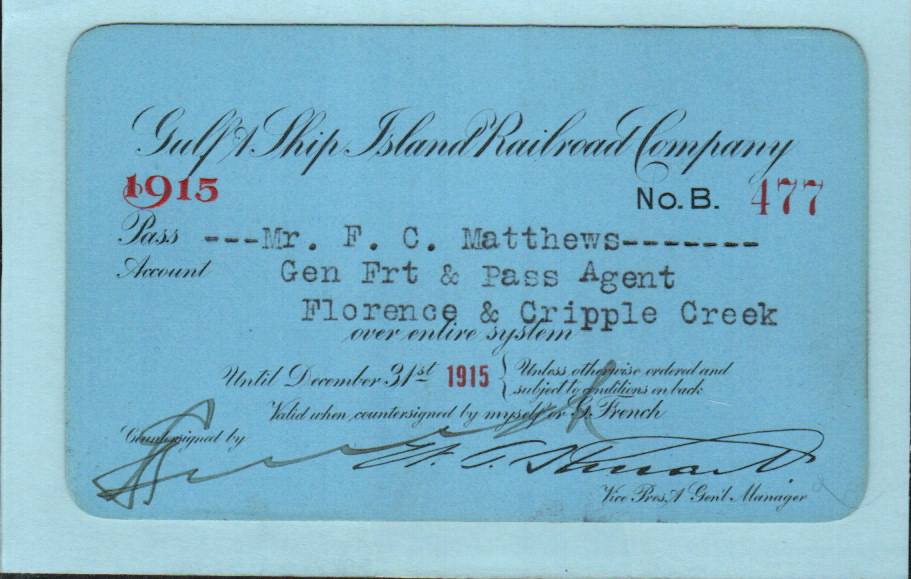 Gulf & Ship Island Railroad Company
1915
No. B. 477
Pass ---Mr. F. C. Matthews-------
Account Gen Frt & Pass Agent
Florence & Cripple Creek
over entire system
Until December 31st 1915 { Unless otherwise ordered and
subject to conditions on back
Valid when countersigned by myself or G. French
Countersigned by
Vice Pres. & Gen'l Manager